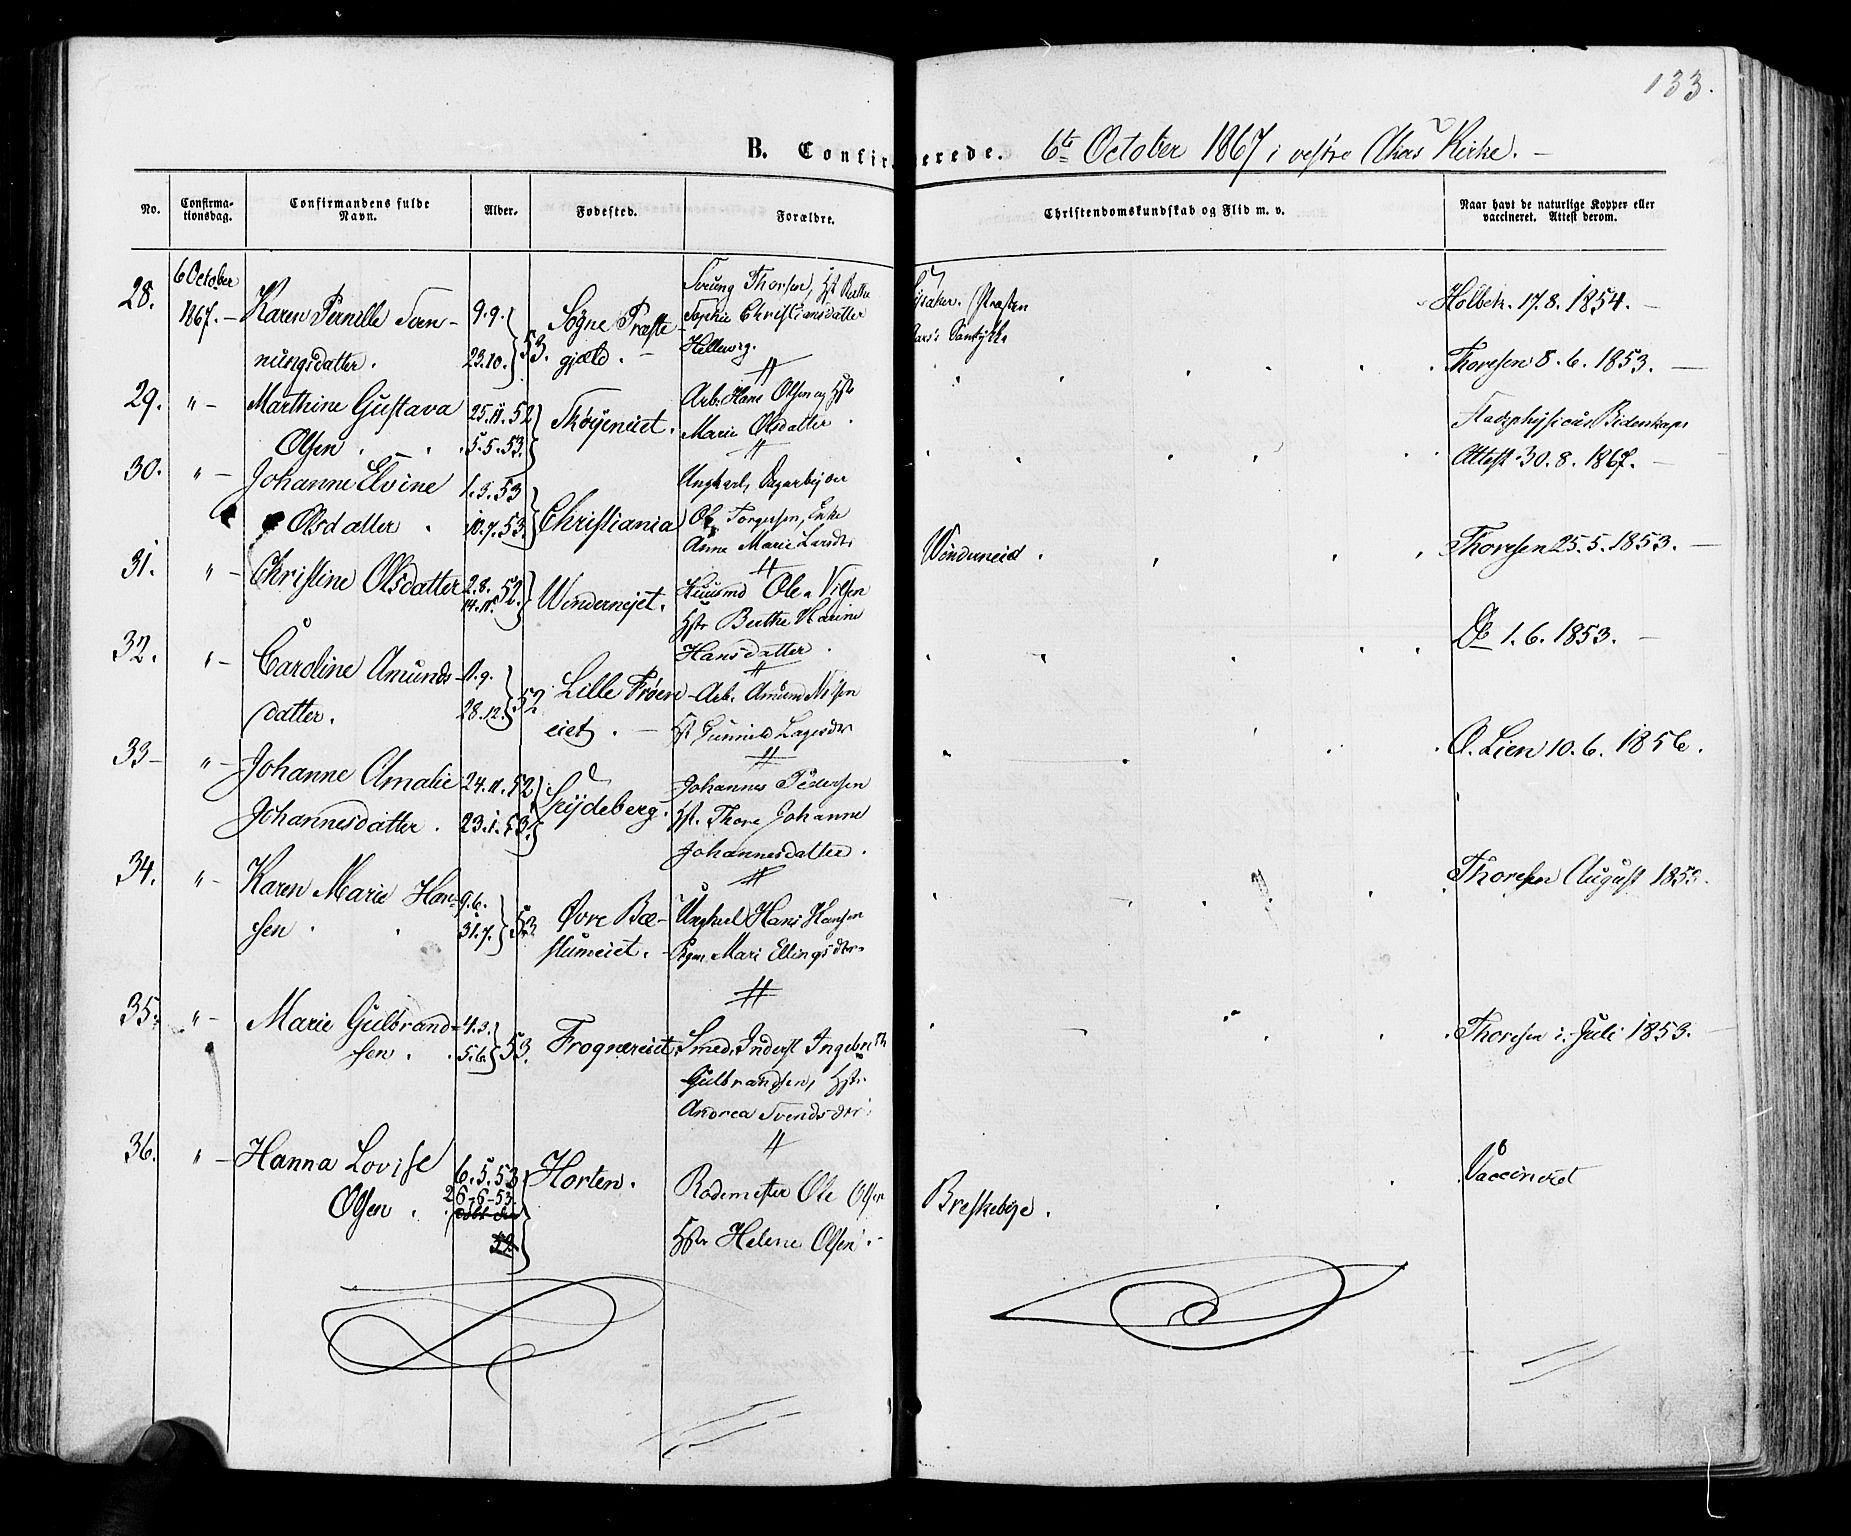 133.
B. Confirmerede. 6te October 1867 i vestre Akers Kirke. —
No. Confirma-tionsdag. Confirmandens fulde Navn. Alder. Fødested. Forældre. Christendomskundskab og Flid m. v. Naar havt de naturlige Kopper eller vaccineret. Attest derom.
28. 6 October 1867. —
Karen Pernille Sven-
nungsdatter.
9.9.
23.10. } 53.
Søgne Præste
gjæld. —
Thorsen,
Sophie Christiansdatter
Hellevig.
Holbek. 17.8. 1854. —
29. " —
Marthine Gustava
Olsen.
25.11.52
5.5.53.
Skøyeneiet.
Arb. Hans Olsen og Hst
Marie Olsdatter.
Thoresen 8.6. 1853. —
30. " —
Johanne Elvine
Olsdatter.
1.3.53
10.7.53.
Christiania
Ungkarl, Dagarbejder
Ole Torgersen, Enke
Anne Marie Larsdtr
Stadsphysicus Bidenkaps
Attest 30.8. 1867. —
31. " —
Christine Olsdatter
2.8.
14.11. } 52.
Windernejet.
Huusmd Ole Nilsen
Hstr Berthe Karine
Hansdatter.
Windereneid.
Thoresen 25.5. 1853. —
32. " —
Caroline Amunds-
datter.
11.9.
28.12. } 52
Lille Frøen-
eiet. —
Arb. Amund Nilsen
Hst Gunnild Lagesdtr
Do 1.6. 1853. —
33 — " —
Johanne Amalie
Johannesdatter.
24.11.52
23.1.53.
Spydeberg.
Johannes Pedersen
Hst. Thore Johanne
Johannesdatter.
O. Lien 10.6. 1856.
34. " —
Karen Marie Han-
sen.
9.6.
31.7. } 53
Øvre Bæ-
stumeiet. —
Ungkarl Hans Hansen
Pgm. Mari Ellingsdtr.
Thoresen August 1853.
35. " —
Marie Gulbrand-
sen.
4.3.
5.6. } 53.
Frognereiet.
Smed, Inderst Ingebreth
Gulbrandsen, Hstr
Andrea Svendsdtr.
Thoresen i Juli 1853.
36. " —
Hanna Lovise
Olsen.
6.5.53
26-6-53
døbt den
52
Horten.
Rodemester Ole Olsen
Hstr Helene Olsen. —
Breskebye.
Vaccineret